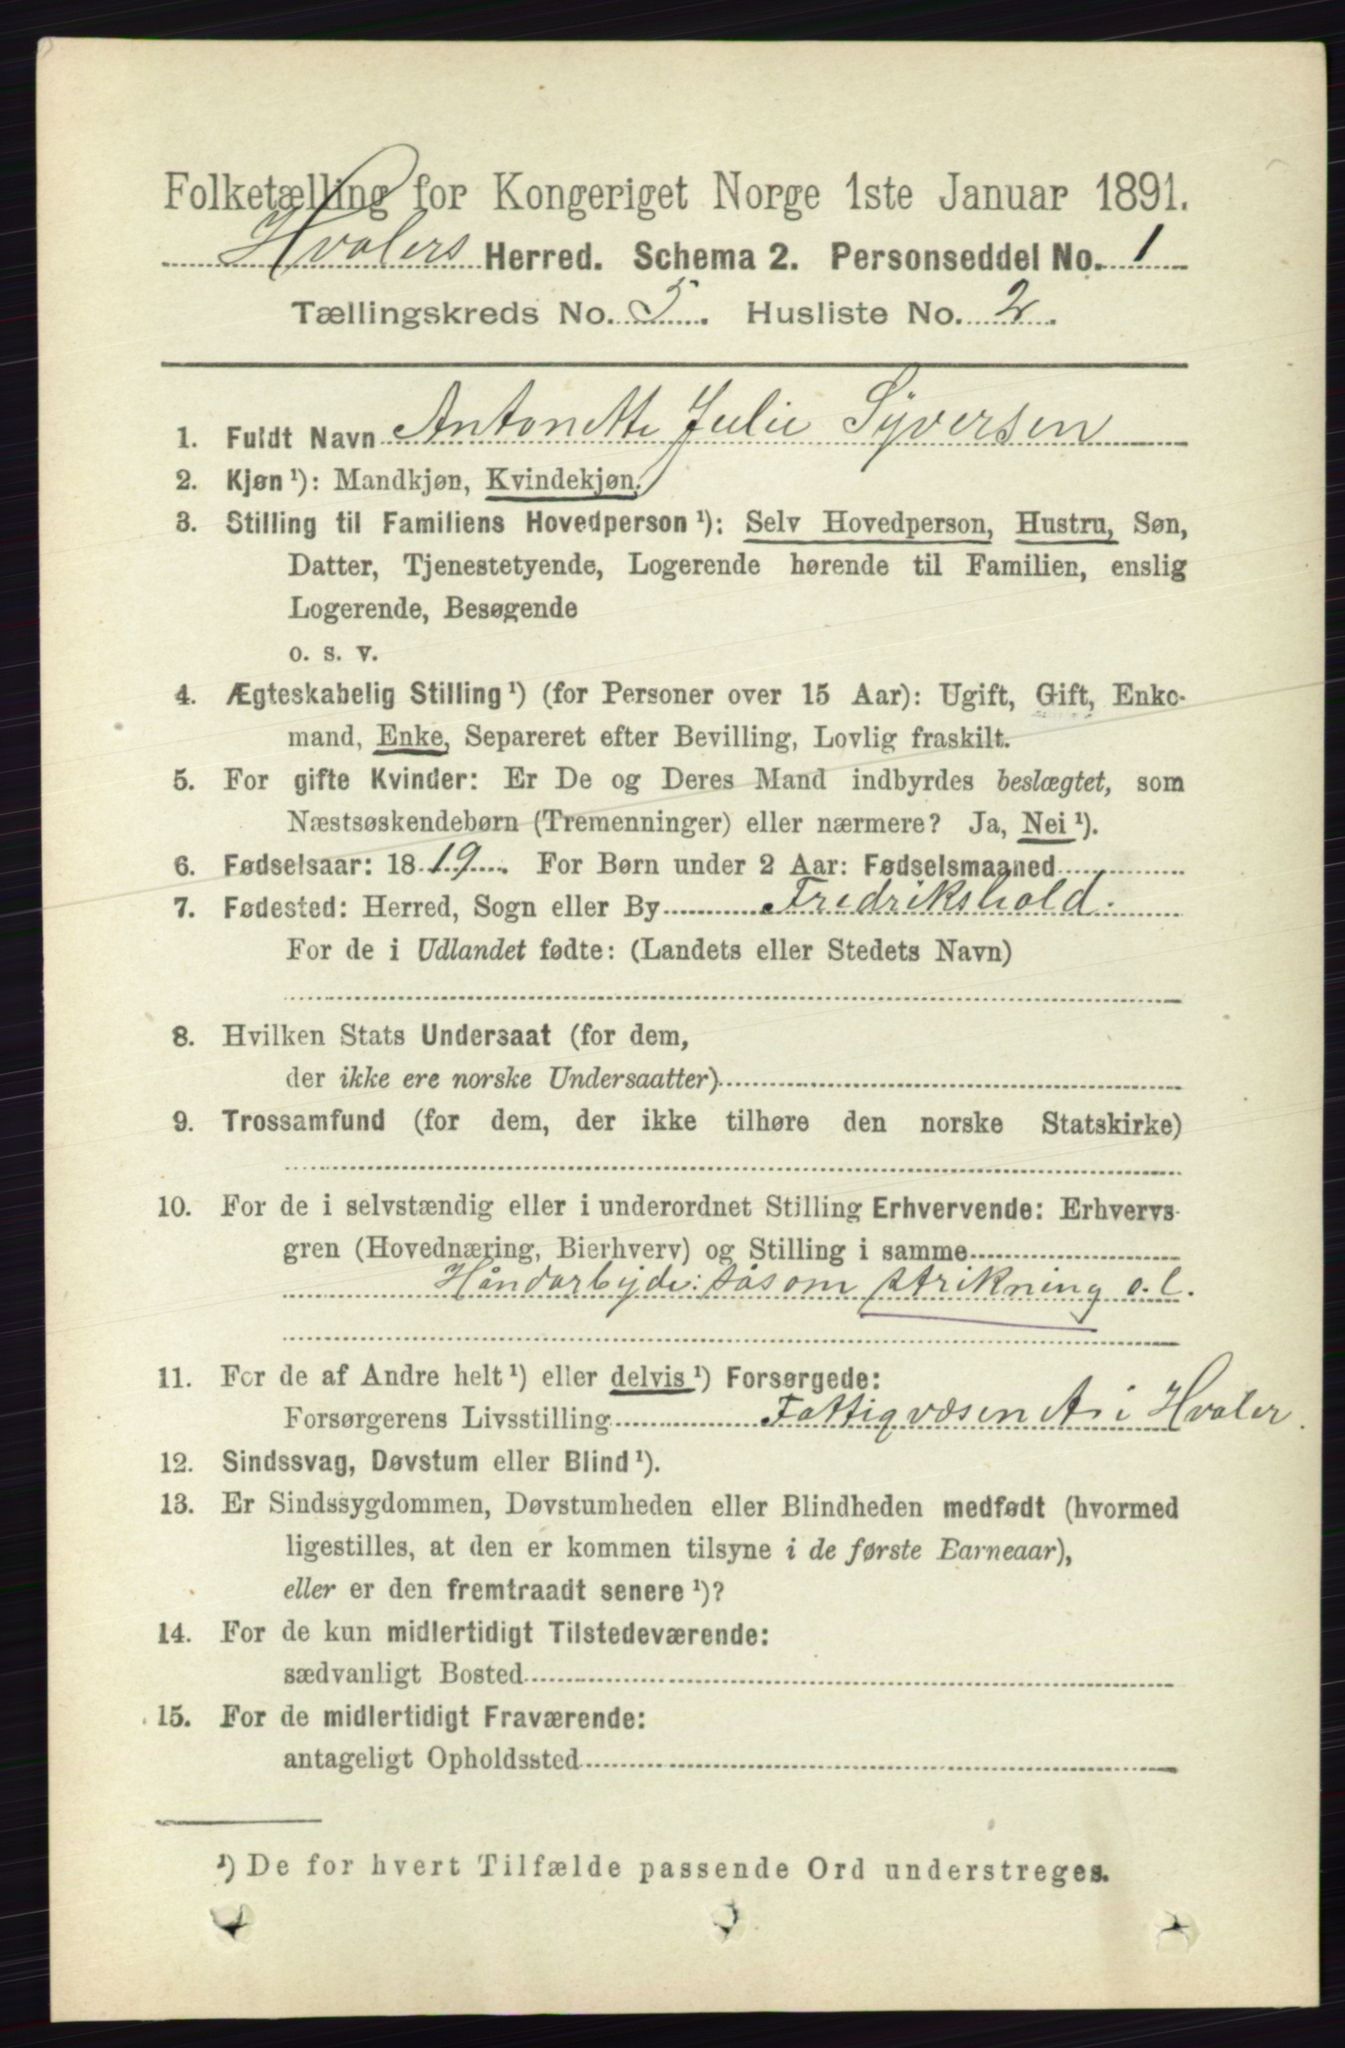 Folketælling for Kongeriget Norge 1ste Januar 1891.
Hvalers Herred. Schema 2. Personseddel No. 1
Tællingskreds No. 5. Husliste No. 2.
1. Fuldt Navn Antonette Julie Syversen
2. Kjøn ¹): Mandkjøn, Kvindekjøn.
3. Stilling til Familiens Hovedperson ¹): Selv Hovedperson, Hustru, Søn,
Datter, Tjenestetyende, Logerende hørende til Familien, enslig
Logerende, Besøgende
o. s. v.
4. Ægteskabelig Stilling ¹) (for Personer over 15 Aar): Ugift, Gift, Enke-
mand, Enke, Separeret efter Bevilling, Lovlig fraskilt.
5. For gifte Kvinder: Er De og Deres Mand indbyrdes beslægtet, som
Næstsøskendebørn (Tremenninger) eller nærmere? Ja, Nei ¹).
6. Fødselsaar: 1819. For Børn under 2 Aar: Fødselsmaaned
7. Fødested: Herred, Sogn eller By Fredrikshald.
For de i Udlandet fødte: (Landets eller Stedets Navn)
8. Hvilken Stats Undersaat (for dem,
der ikke ere norske Undersaatter)
9. Trossamfund (for dem, der ikke tilhøre den norske Statskirke)
10. For de i selvstændig eller i underordnet Stilling Erhvervende: Erhvervs-
gren (Hovednæring, Bierhverv) og Stilling i samme
Håndarbyde: såsom strikning o.l.
11. For de af Andre helt ¹) eller delvis ¹) Forsørgede:
Forsørgerens Livsstilling Fattigvæsenet i Hvaler.
12. Sindssvag, Døvstum eller Blind ¹).
13. Er Sindssygdommen, Døvstumheden eller Blindheden medfødt (hvormed
ligestilles, at den er kommen tilsyne i de første Barneaar),
eller er den fremtraadt senere ¹)?
14. For de kun midlertidigt Tilstedeværende:
sædvanligt Bosted
15. For de midlertidigt Fraværende:
antageligt Opholdssted
¹) De for hvert Tilfælde passende Ord understreges.